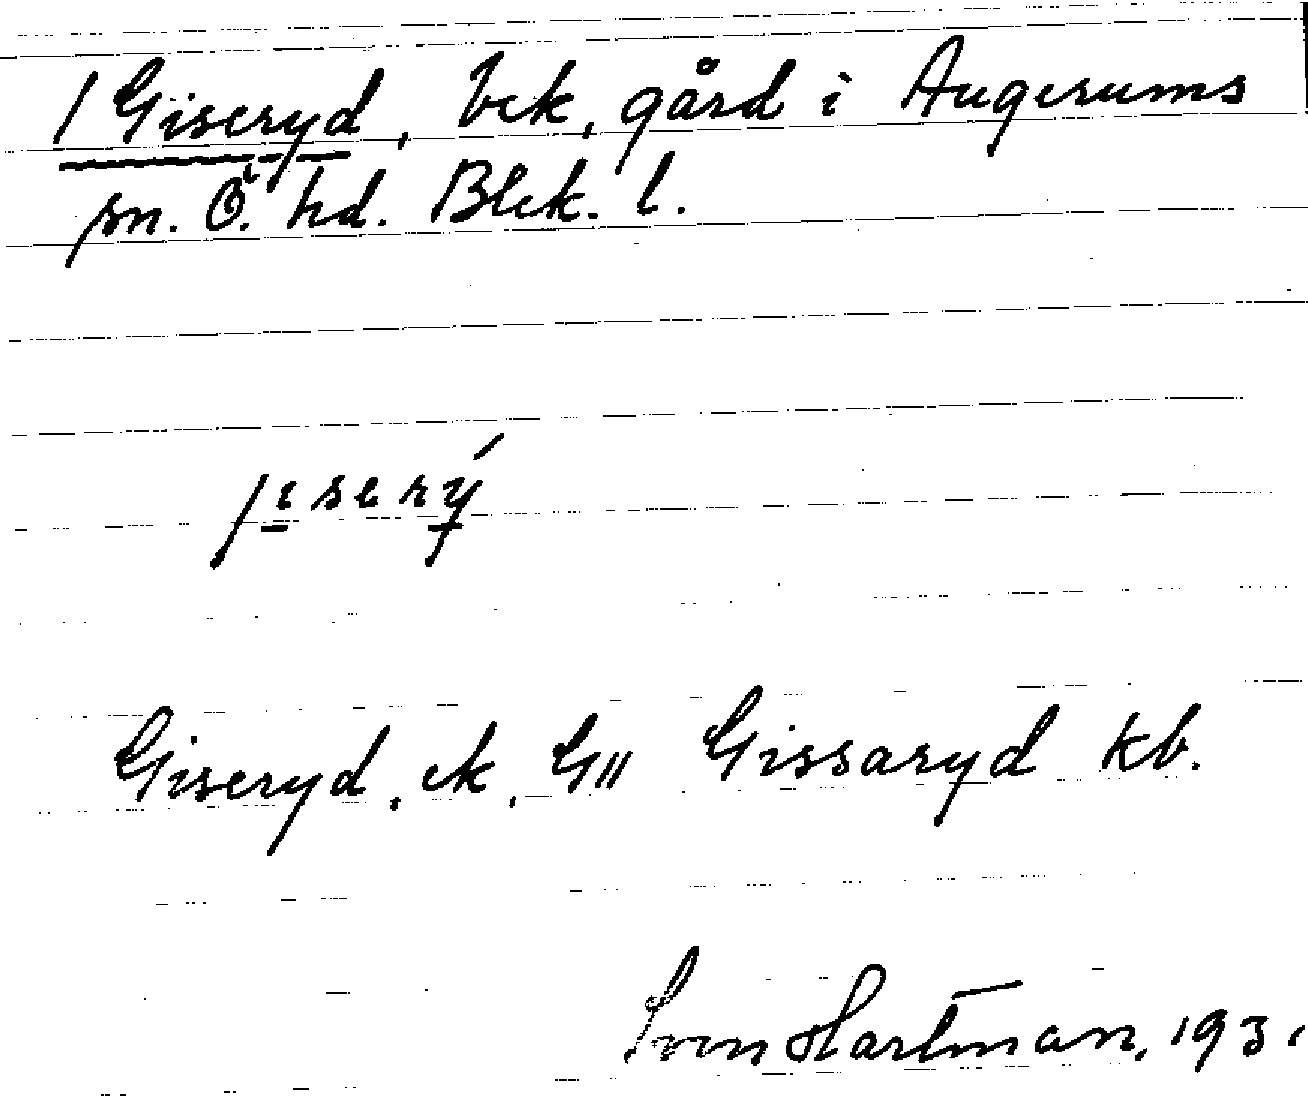 1 Giseryd, bek, gård i Augerums
sn. Ö. hd. Blek. l.
jiserý
Giseryd, ek, G11 Gissaryd kb.
Sven Hartman, 1931